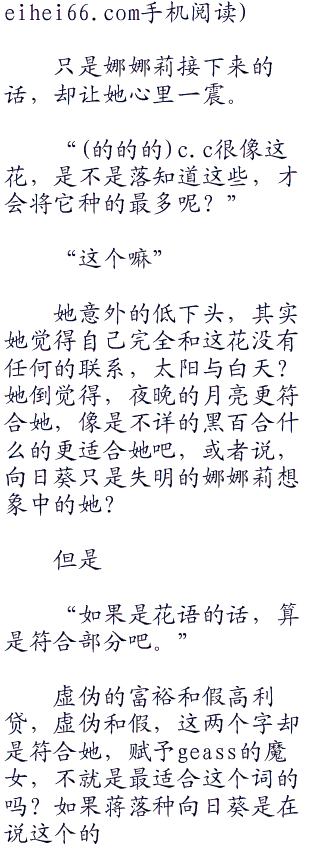 eihei66.com手机阅读)
只是娜娜莉接下来的
话，却让她心里一震。
“(的的的)c.c很像这
花，是不是落知道这些，才
会将它种的最多呢？”
“这个嘛”
她意外的低下头，其实
她觉得自己完全和这花没有
任何的联系，太阳与白天？
她倒觉得，夜晚的月亮更符
合她，像是不详的黑百合什
么的更适合她吧，或者说，
向日葵只是失明的娜娜莉想
象中的她？
但是
“如果是花语的话，算
是符合部分吧。”
虚伪的富裕和假高利
贷，虚伪和假，这两个字却
是符合她，赋予geass的魔
女，不就是最适合这个词的
吗？如果蒋落种向日葵是在
说这个的